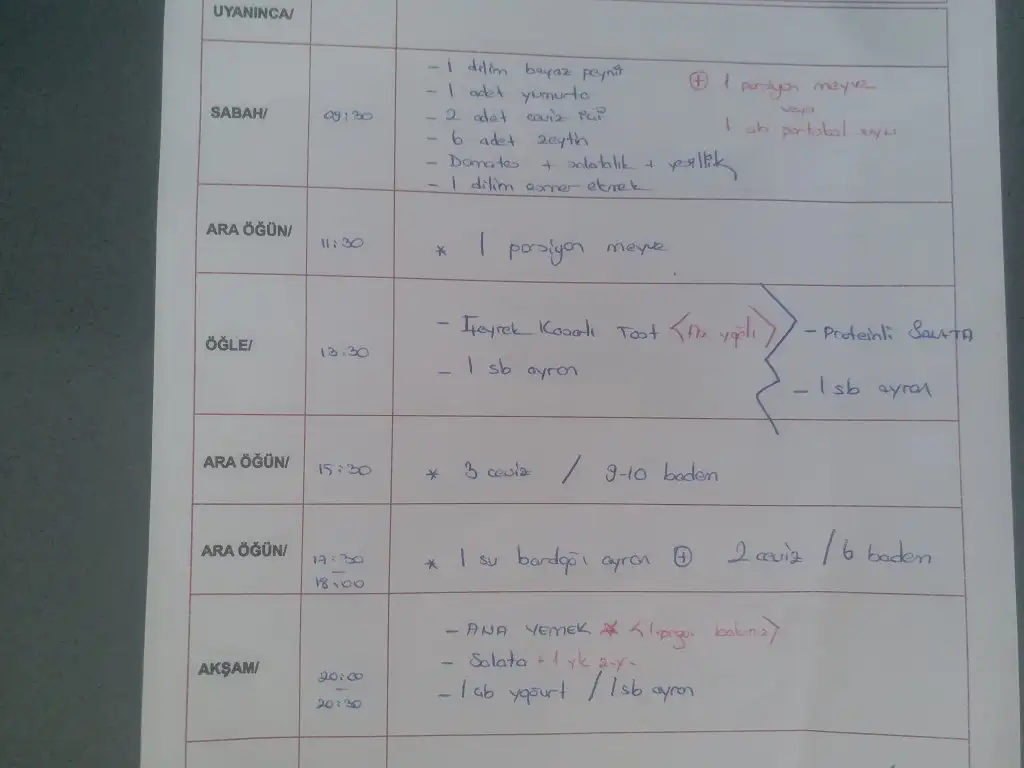 UYANINCA/
SABAH/
09:30
- 1 dilim beyaz peynir
- 1 adet yumurta
- 2 adet ceviz içi
- 6 adet zeytin
- Domates + salatalık + yeşillik
- 1 dilim esmer ekmek
⊕ 1 porsiyon meyve
veya
1 portakal suyu
ARA ÖĞÜN/
11:30
* 1 porsiyon meyve
ÖĞLE/
13:30
- Kaşarlı Tost <Az yağlı>
- 1 sb ayran
- Proteinli SALATA
- 1 sb ayran
ARA ÖĞÜN/
15:30
* 3 ceviz / 9-10 badem
ARA ÖĞÜN/
17:30
-
18:00
* 1 su bardağı ayran ⊕ 2 ceviz / 6 badem
AKŞAM/
20:00
-
20:30
- ANA YEMEK *
- Salata + 1 yk z.y.
- 1 yoğurt / 1 sb ayran